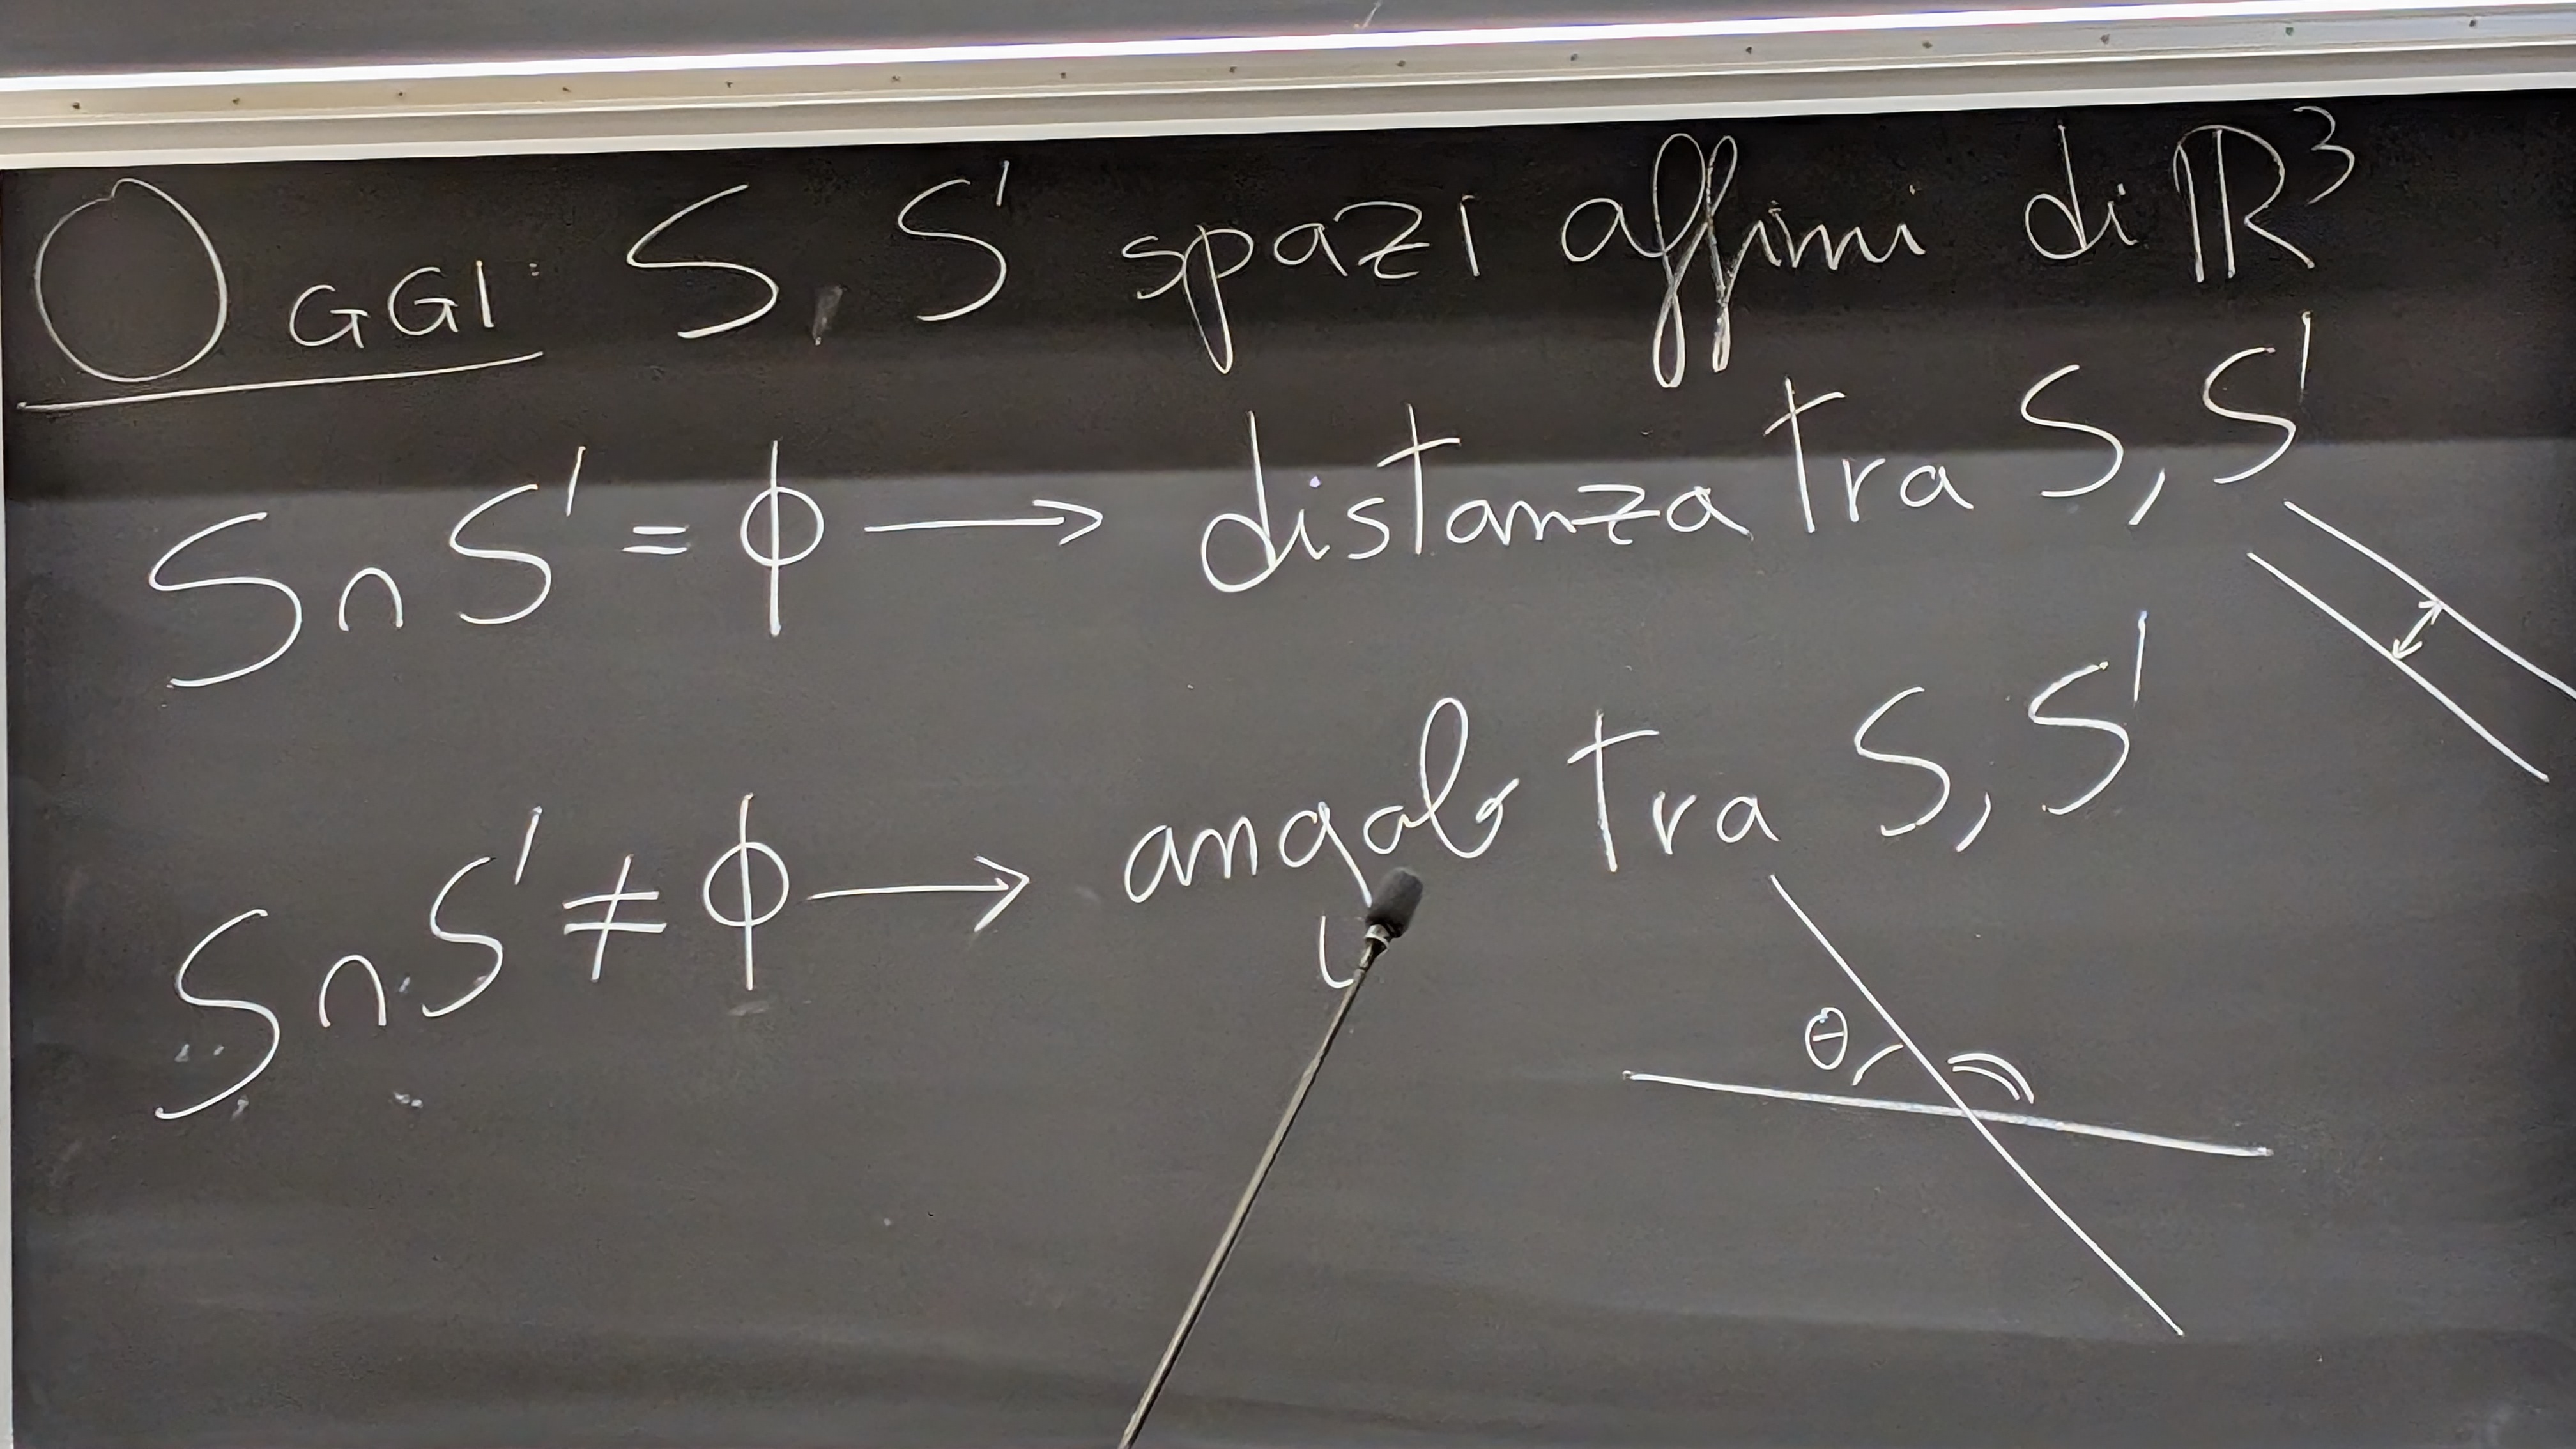 OGGI: S, S' spazi affini di ℝ³
S ∩ S' = ϕ → distanza tra S, S'
S ∩ S' ≠ ϕ → angolo tra S, S'
θ